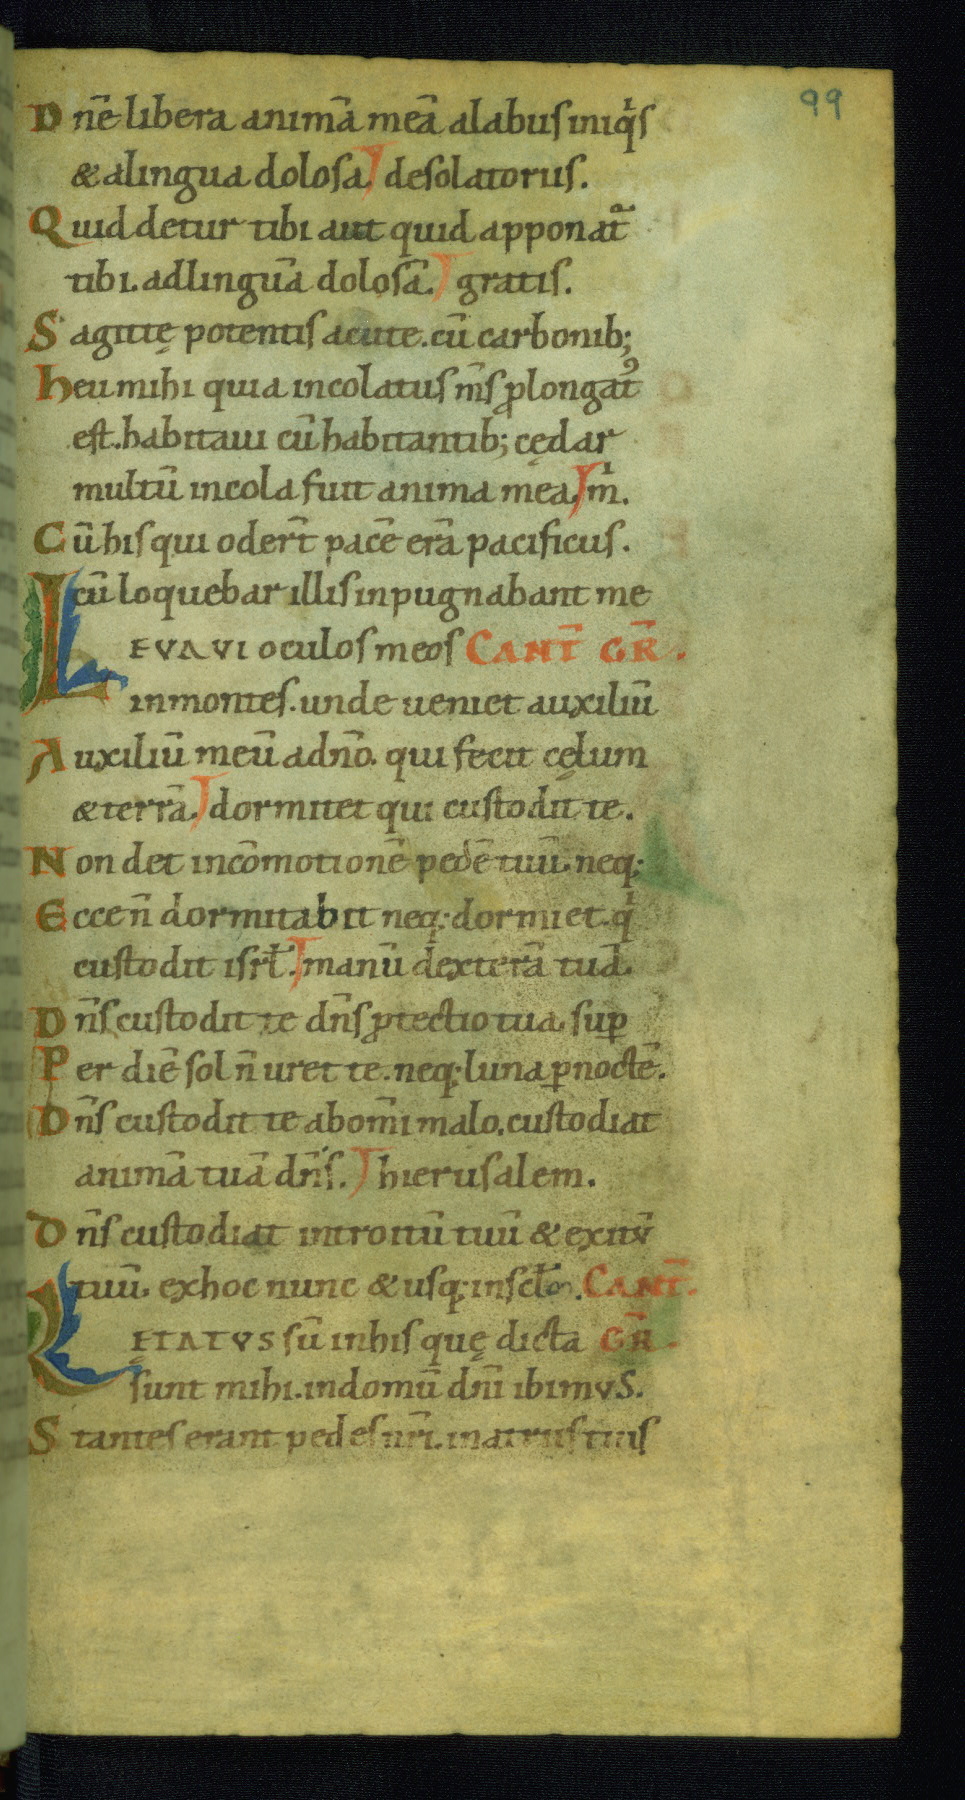 99
Dn̄e libera animā meā alabus iniq̍s
& alingua dolosa desolatorus.
Quid detur tibi aut quid apponat᷑
tibi. adlinguā dolosā. gratis.
Sagittę potentis acute. cū carbonib;
heu mihi quia incolatus m̄s ꝓlongat᷒
est. habitaui cū habitantib; cędar
multū incola fuit anima mea. m̍.
Cū his qui odert̄ pacē erā pacificus.
cū loquebar illis inpugnabant me
LEVAVI oculos meos CANT̄ GR̄.
in montes. unde ueniet auxiliū
Auxiliū meū adn̄o. qui fecit cęlum
& terrā. dormitet qui custodit te.
Non det incōmotionē pedē tuū. neq;
Ecce n̄ dormitabit neq; dormiet. q̍
custodit isrł. manū dexterā tuā.
Dn̄s custodit te dn̄s ꝓtectio tua. suꝑ
Per diē sol n̄ uret te. neq; luna ꝑ noctē.
Dn̄s custodit te abom̄i malo. custodiat
animā tuā dn̄s. hierusalem.
Dn̄s custodiat introitū tuū & exitv̄
tuū. exhoc nunc & usq; insc̄lo. CANT̄.
LĘTATVS sū inhis quę dicta GR̄.
sunt mihi. indomū dn̄i ibimvS.
Stantes erant pedes nr̄i. inatriis tuis